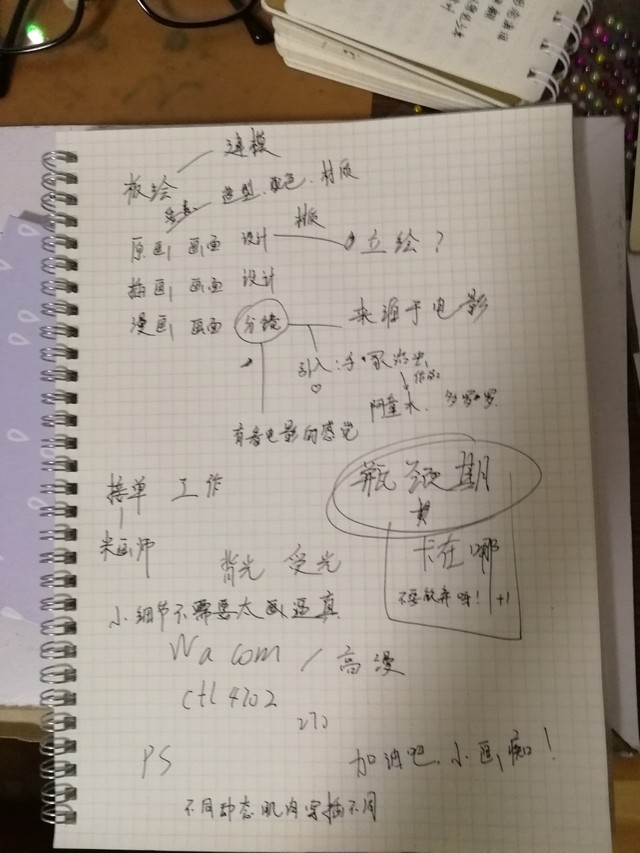 建模
板绘
造型、配色、材质
原画, 画面 设计 排版 立绘?
插画, 画面 设计
漫画, 画面 分镜 来源于电影
引入:手冢治虫
作品
阿童木
有着电影的感觉
接单 工作
米画师
瓶颈期
卡在哪
不要放弃呀! +1
背光 受光
小细节不需要太画逼真
Wacom / 高漫
ctl 4702
PS
加油吧、小画痴!
不同动态肌肉穿插不同